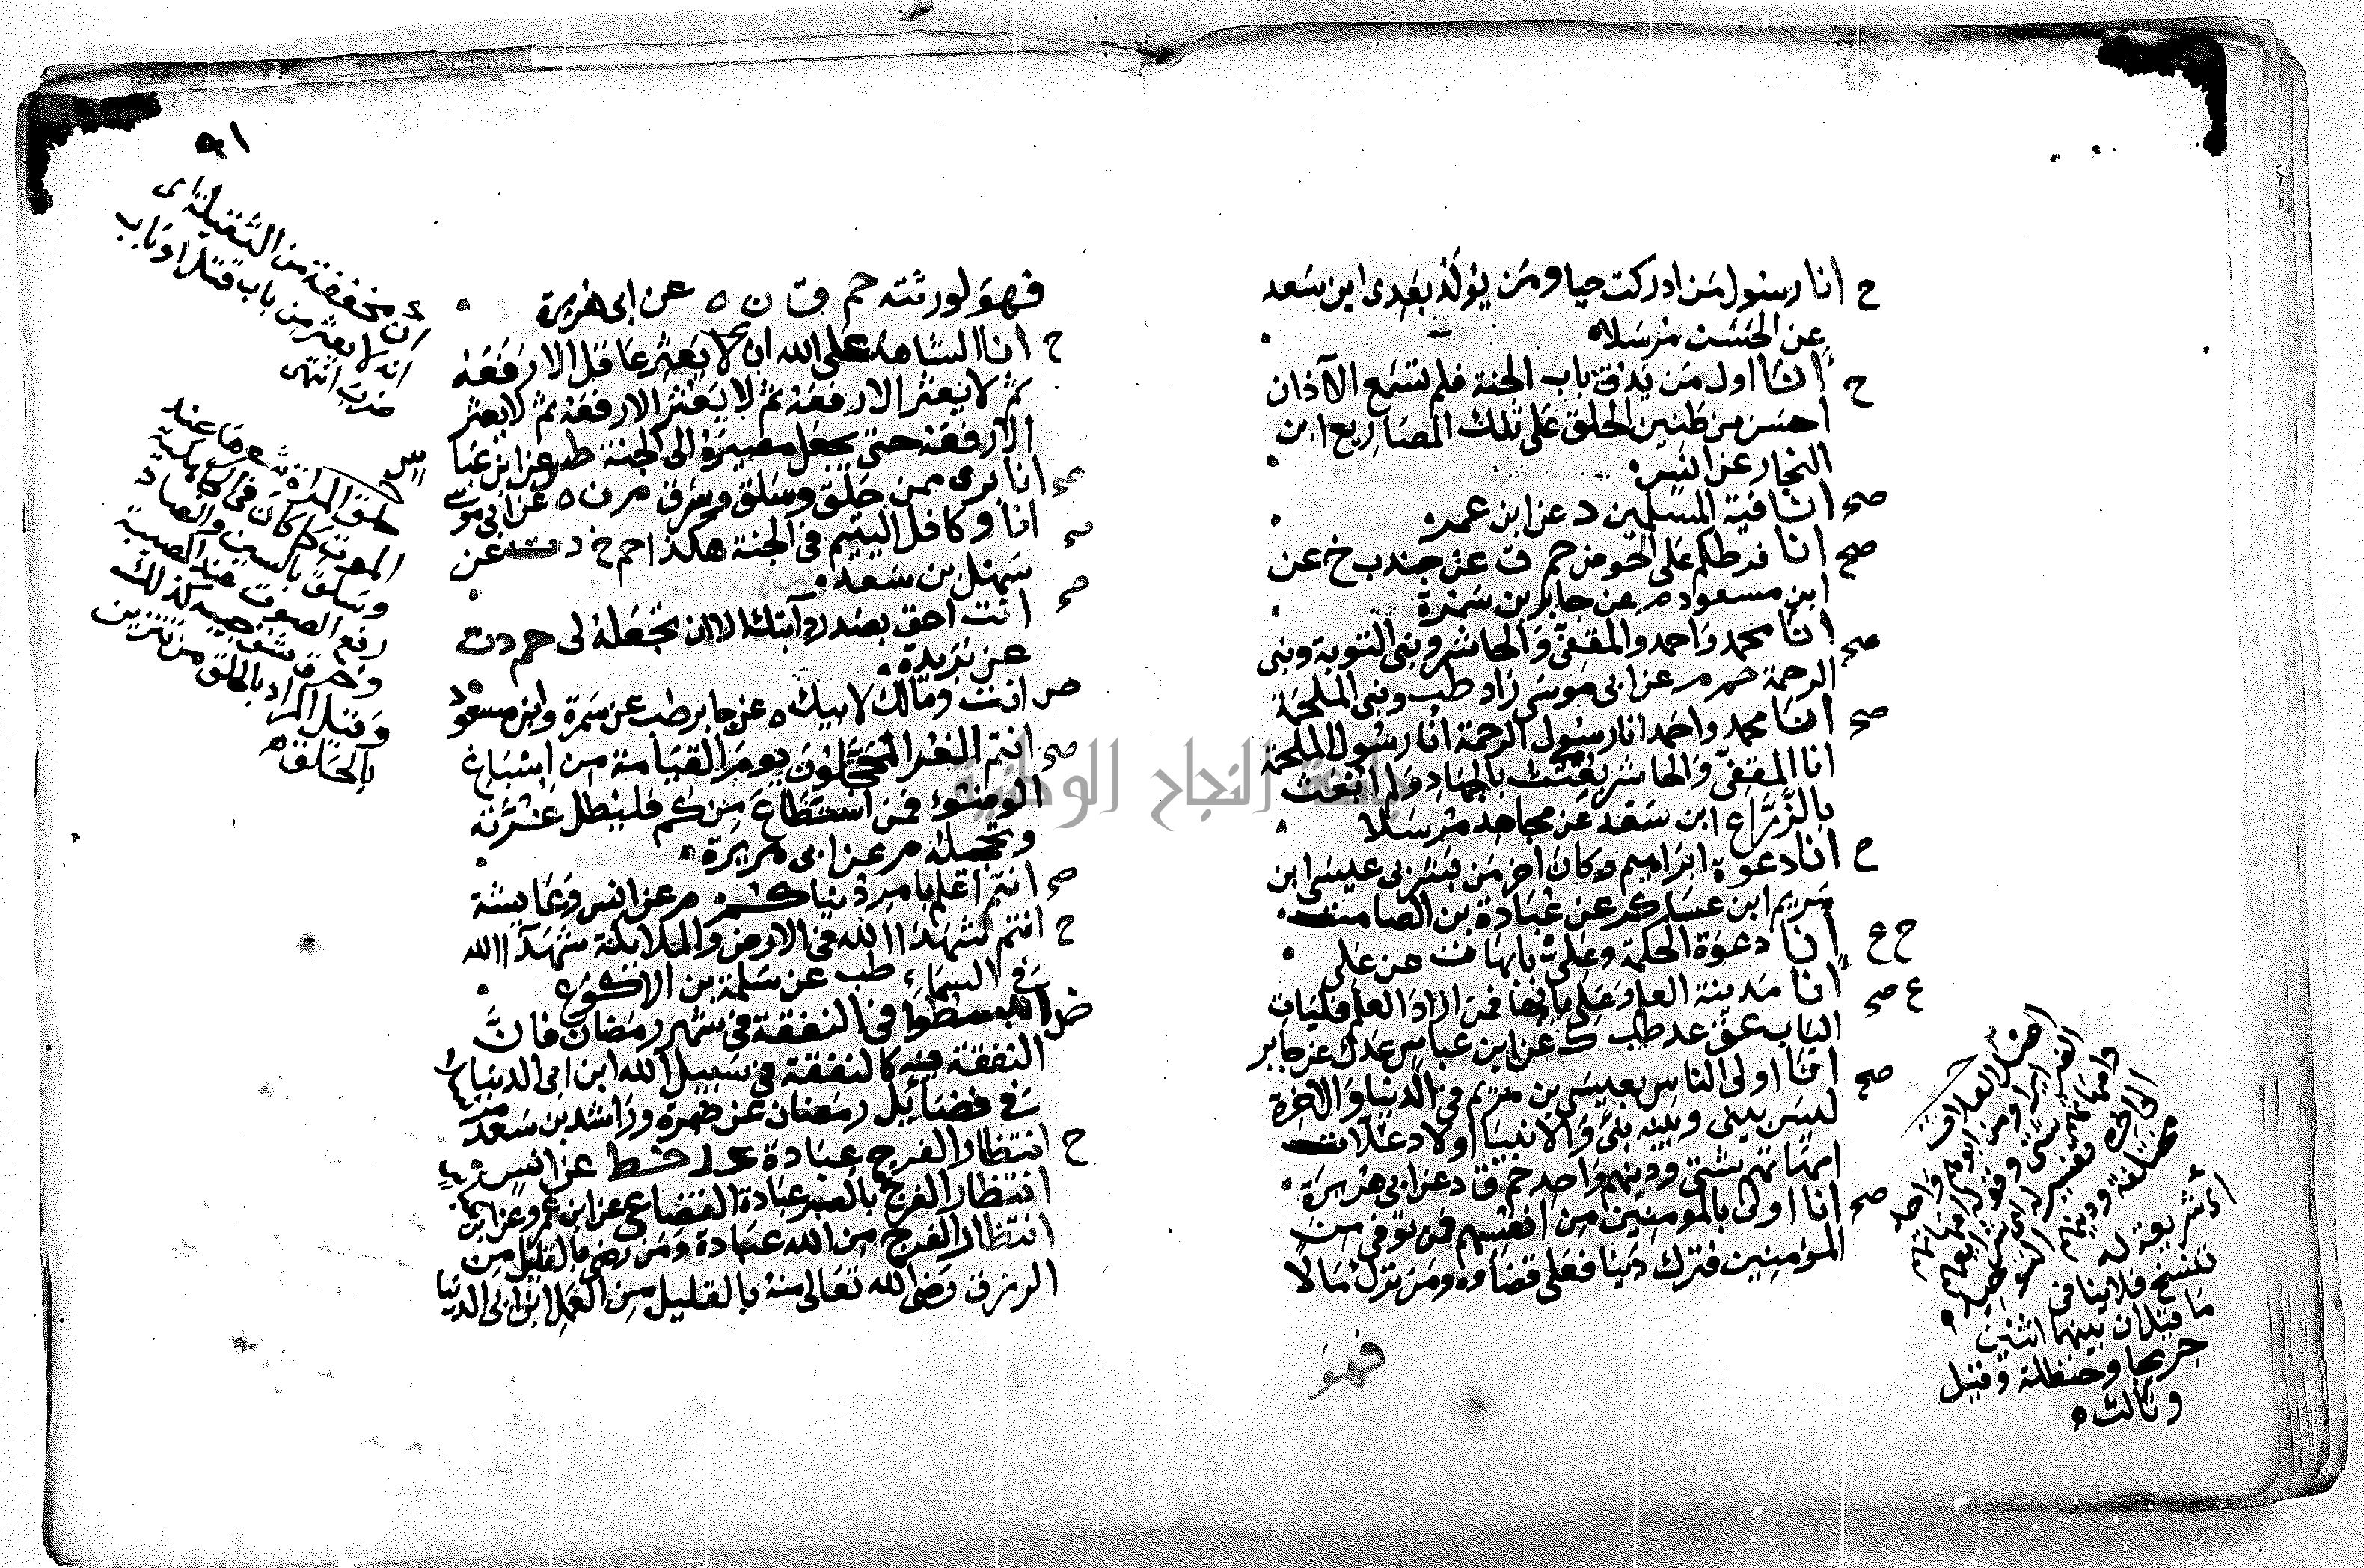 ح انا رسول من ادركت حيا ومن يولد بعدى ابن سعد
عن الحسن مرسلا
ح انا اول من يدق باب الجنة فلم تسمع الآذان
احسن من طنين الحلق على تلك المصاريع ابن
النجار عن انس
صح انا فية المسلمين د عن ابن عمر
صح انا فرطكم على الحوض حم ق عن جندب خ عن
ابن مسعود م عن جابر بن سمرة
صح انا محمد واحمد والمقفى والحاشر ونبى التوبة ونبى
الرحمة حم م عن ابى موسى زاد طب ونبى الملحمة
صح انا محمد واحمد انا رسول الرحمة انا رسول الملحمة
انا المقفى والحاشر بعثت بالجهاد ولم ابعث
بالزراع ابن سعد عن مجاهد مرسلا
ح انا دعوة ابراهيم وكان اخر من بشر بى عيسى ابن
مريم ابن عساكر عن عبادة بن الصامت
ح ع انا دعوة الحكمة وعلى بابها ت عن على
ع صح انا مدينة العلم وعلى بابها فمن اراد العلم فليات
الباب عق عد طب ك عن ابن عباس عد ك عن جابر
صح انا اولى الناس بعيسى بن مريم فى الدنيا والاخرة
ليس بينى وبينه نبى والانبيا اولاد علات
امهاتهم شتى ودينهم واحد حم ق د عن ابى هريرة
صح انا اولى بالمومنين من انفسهم فمن توفى من
المؤمنين فترك دينا فعلى قضاوه ومن ترك مالا
فهو
اصل العلات
واحد
وامهاتهم شتى وقوله امهاتهم
مختلفة ودينهم التوحيد
اى شريعة له
تنسخ فلا ينافى
ما قيل ان بينهما اثنين
جريجا وحنظلة وقيل
وثالث ه
٩١
فهو لورثته حم ق ن ه عن ابى هريرة
ح انا الشاهد على الله ان لا يعثر عاقل الا رفعه
ثم لا يعثر الا رفعه ثم لا يعثر الا رفعه ثم لا يعثر
الا رفعه حتى يجعل مصيره الى الجنة طس عن ابن عبا
صح انا برى ممن حلق وسلق وخرق م ن ه عن ابى موسى
صح انا وكافل اليتيم فى الجنة هكذا حم خ د ت عن
سهل بن سعد
صح انت احق بصدر دابتك الا ان تجعله لى حم د ت
عن بريدة
ص انت ومالك لابيك ه عن جابر طب عن سمرة وابن مسعود
صح انتم الغر المحجلون يوم القيامة من اسباغ
الوضوء فمن استطاع منكم فليطل غرته
وتحجيله م عن ابى هريرة
صح انتم اعلم بامر دنياكم م عن انس وعايشة
ح انتم شهدا الله فى الارض والملايكة شهدا الله
فى السماء طب عن سلمة بن الاكوع
ض انبسطوا فى النفقة فى شهر رمضان فان
النفقة فيه كالنفقة فى سبيل الله ابن ابى الدنيا
فى فضايل رمضان عن ضمرة وراشد بن سعد
ح انتظار الفرج عبادة عد خط عن انس
انتظار الفرج بالصبر عبادة القضاعى عن ابن عمر وعن ابن
انتظار الفرج من الله عبادة ومن رضى بالقليل من
الرزق رضى الله تعالى منه بالقليل من العمل ابن ابى الدنيا
ان مخففة من الثقيلة اى
انه لا يعثر من باب قتل او باب
ضرب انتهى
سلق المراة عند
الموت كما كان فى الجاهلية
وسلق بالسين والصاد
رفع الصوت عند المصيبة
وخرق شق جيبه كذلك
وقيل المراد بالحلق من تتزين
بالحلق ه